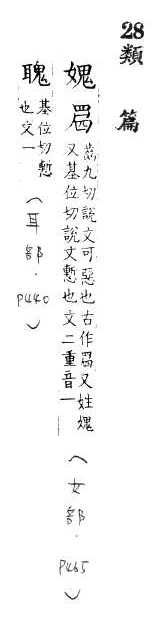 28
類篇
媿㞒 齒九切說文可惡也古作㞒又姓媿
又基位切說文慙也文二重音一
（女部．P465）
聭 基位切慙
也文一
（耳部．P440）